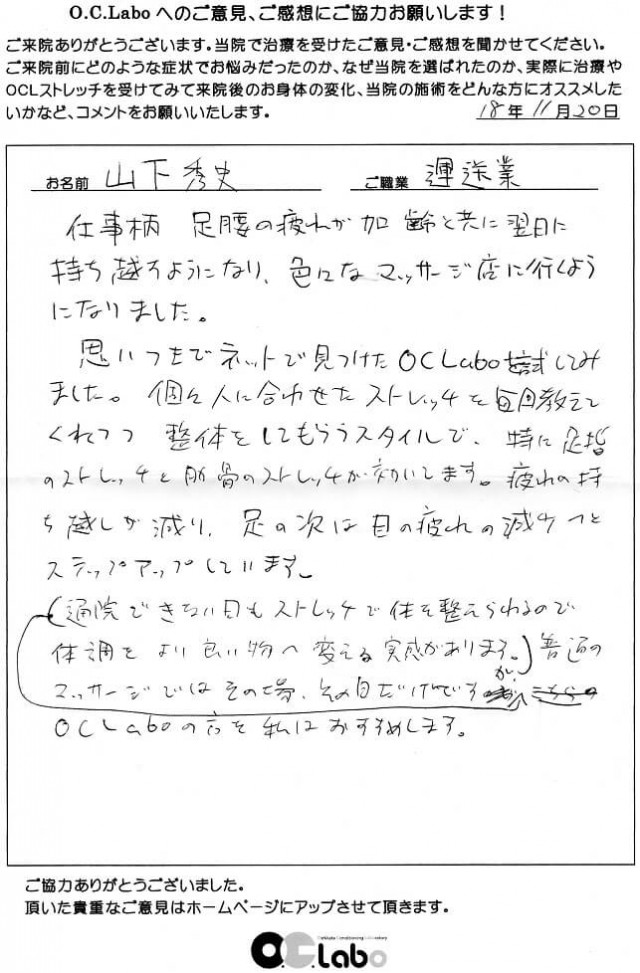 O.C.Labo へのご意見、ご感想にご協力お願いします！
ご来院ありがとうございます。当院で治療を受けたご意見・ご感想を聞かせてください。
ご来院前にどのような症状でお悩みだったのか、なぜ当院を選ばれたのか、実際に治療や
OCLストレッチを受けてみて来院後のお身体の変化、当院の施術をどんな方にオススメした
いかなど、コメントをお願いいたします。
18年 11月 20日
お名前 山下秀史 ご職業 運送業
仕事柄 足腰の疲れが加齢と共に翌日に
持ち越ろようになり、色々なマッサージ店に行くよう
になりました。
思いつきでネットで見つけたOCLabo試してみ
ました。個々人に合わせたストレッチを毎回教えて
くれつつ 整体をしてもらうスタイルで、特に足指
のストレッチと肋骨のストレッチが効いてます。疲れの持
ち越しが減り、足の次は目の疲れの減少へと
ステップアップしています。
（通院できない日もストレッチで体を整えられるので
体調をより良い物へ変える実感があります。）普通の
マッサージではその場、その日だけですが、
OCLaboの方を私はおすすめします。
ご協力ありがとうございました。
頂いた貴重なご意見はホームページにアップさせて頂きます。
O.C.Labo